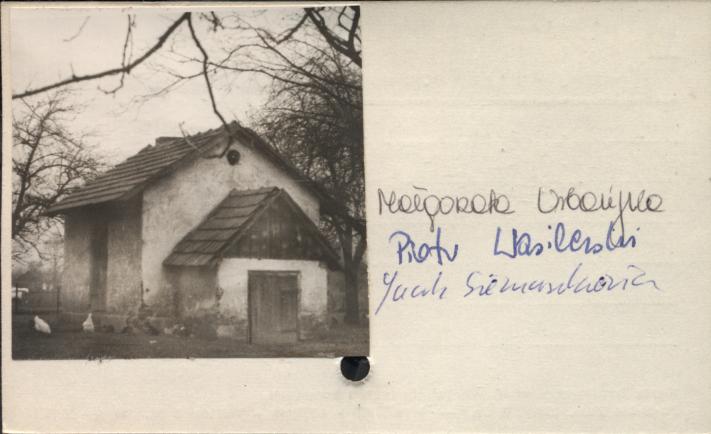 Małgorzata Urbańska
Piotr Wasilewski
Jacek Siemaszkiewicz